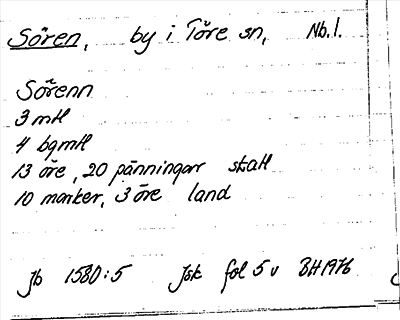 Sören, by i Töre sn, Nb.l.
Sörenn
3 mtl
4 bgmtl
13 öre, 20 pänningar skatt
10 marker, 3 öre land
Jb 1580:5 Jsk fol 5 v BH 1976